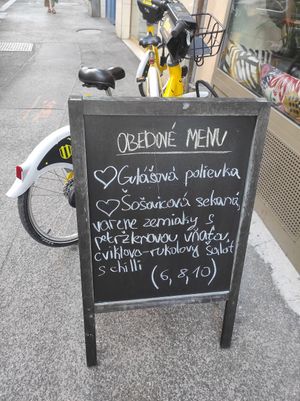 OBEDOVÉ MENU
♡ Gulášová polievka
♡ Šošovicová sekaná,
varené zemiaky s
petržlenovou vňaťou,
cviklovo-rukolový šalát
s chilli
(6, 8, 10)